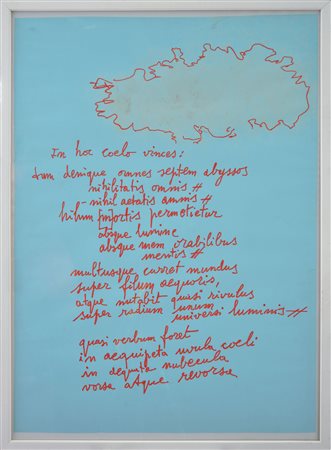 In hoc coelo vinces:
tum denique omnes septem abyssos
nihilitatis omnis #
nihil aetatis amnis #
hilum importis permetietur
absque lumine
absque mem orabilibus
mentis #
multusque curret mundus
super filum aequoris,
atque nutabit quasi rivulus
super radium unum
universi luminis #
quasi verbum foret
in aequipeta uvula coeli
in dequita nubecula
vorsa atque revorsa